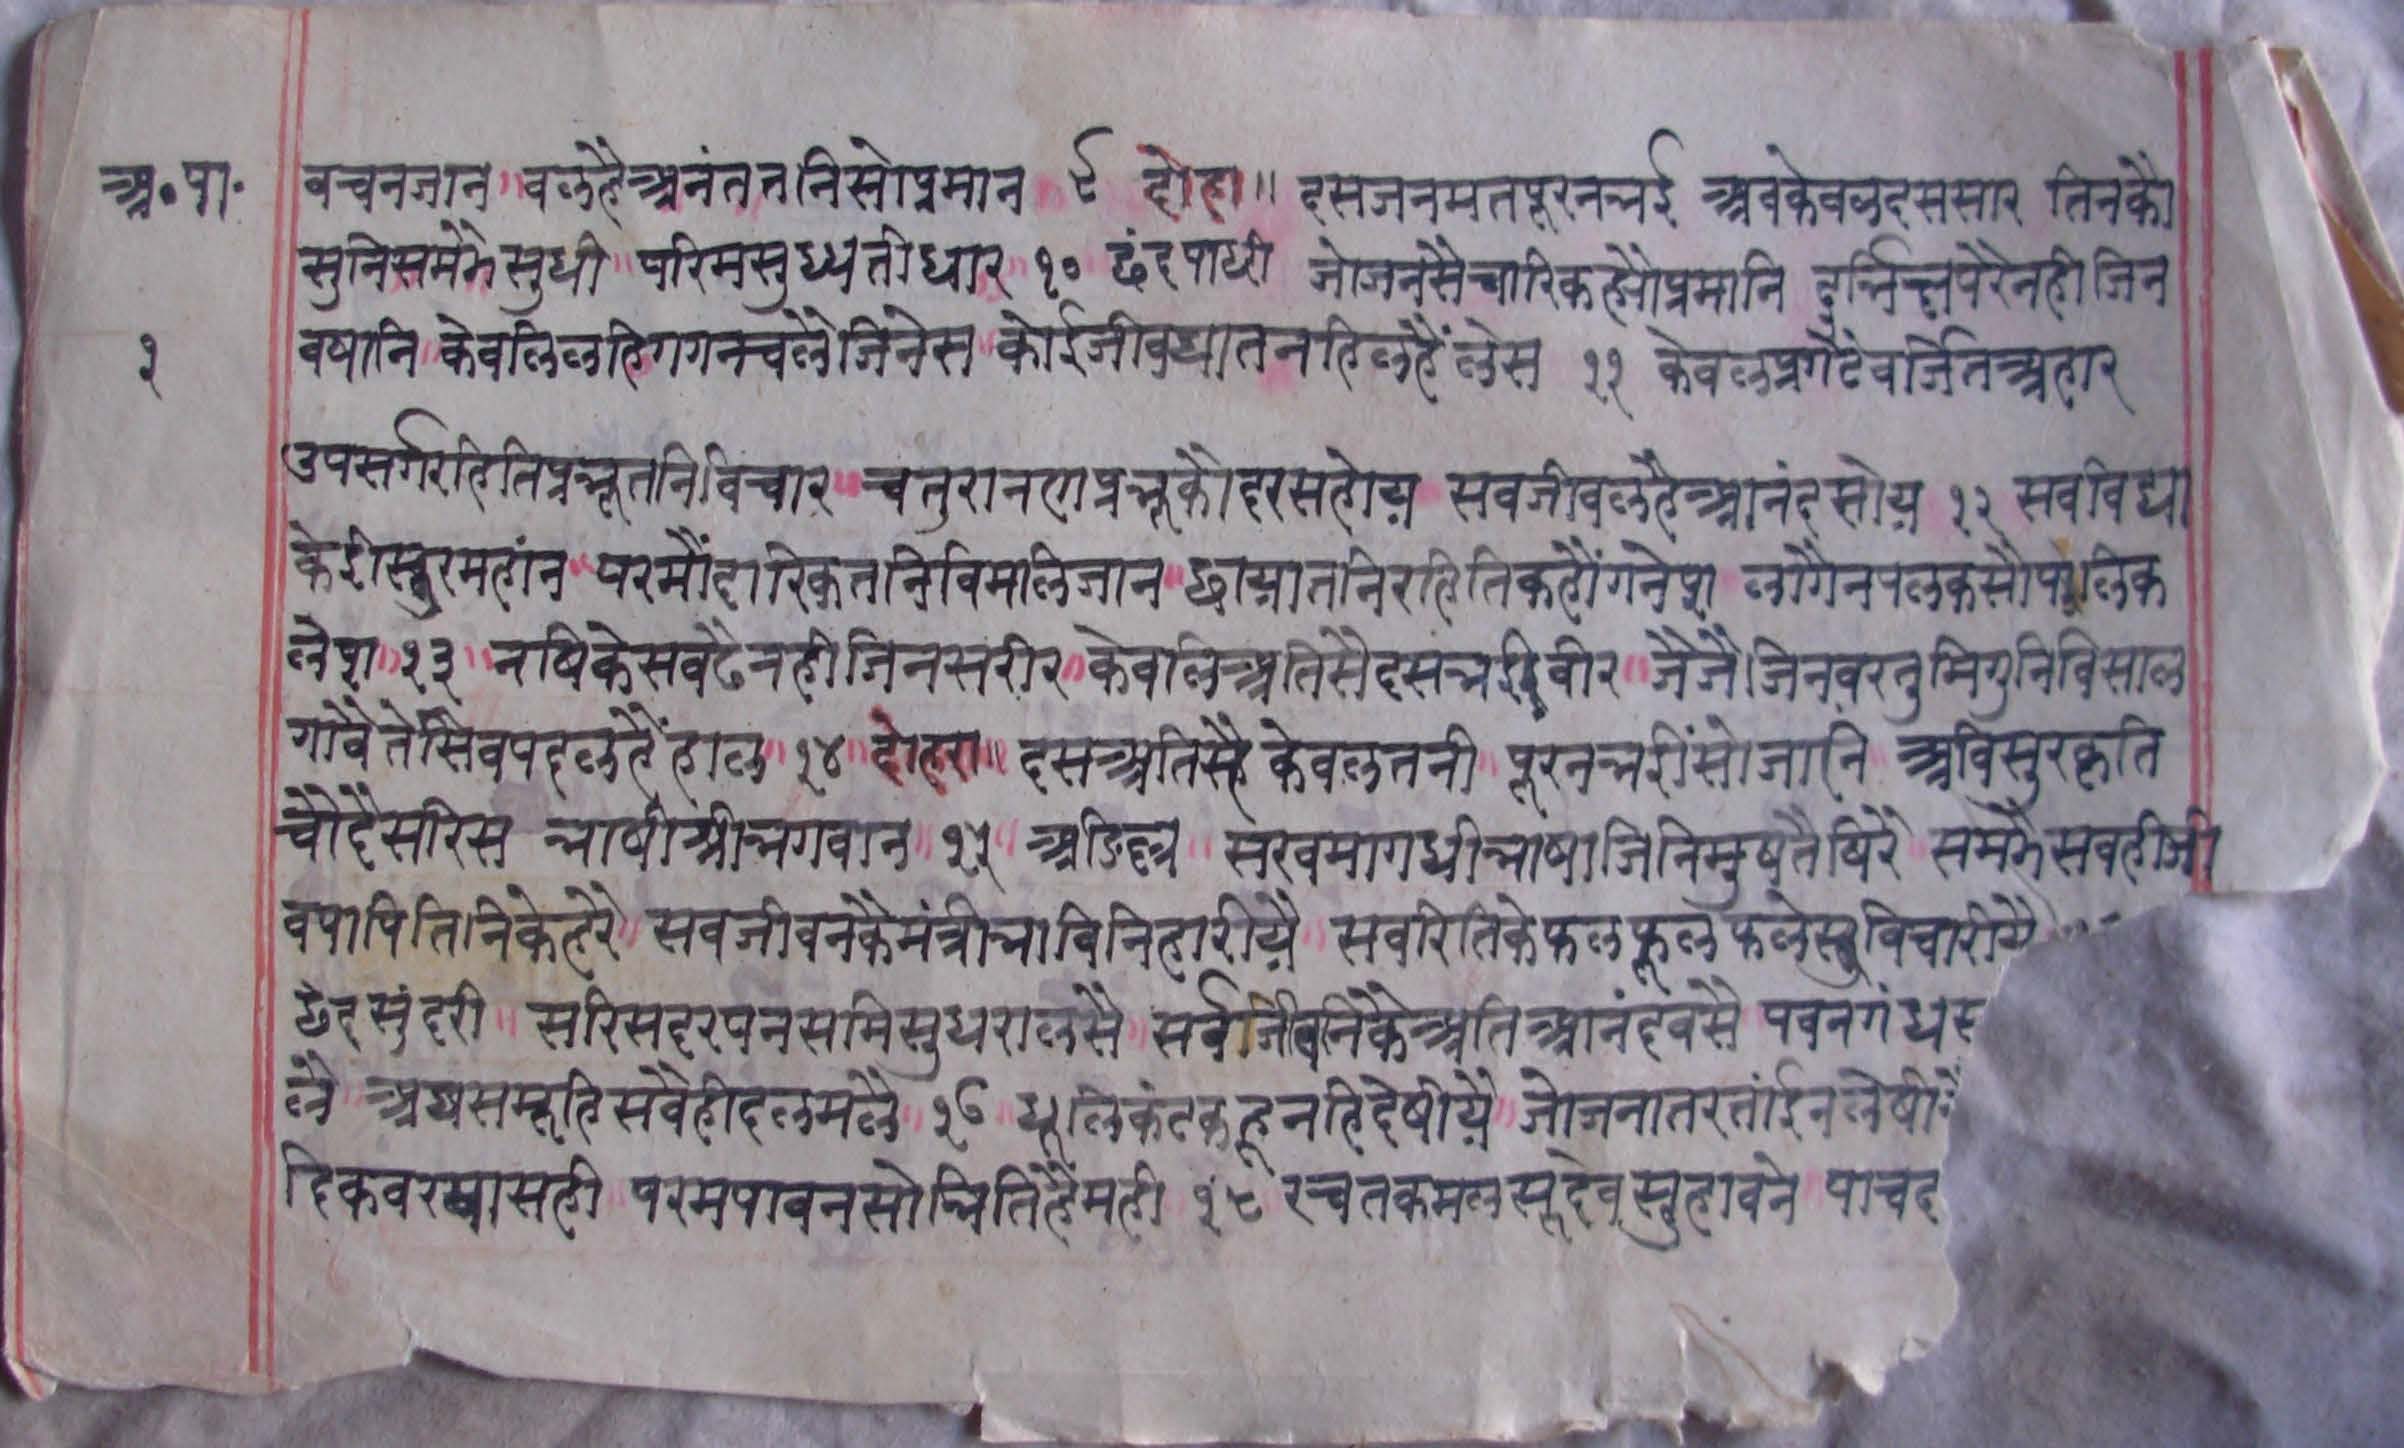 अ॰पा॰
१
वचनजान॥वलहैअनंततनिसोप्रमान ९ दोहा॥ दसजनमतपूरनभई अवकेवलदससार तिनकौ
सुनिसमैझैसुधी॥परिमसुध्यतीधार १० छंदपाधरी जोजनसैचारिकह्यौप्रमानि दुर्भिछपरैनहीजिन
वषानि॥केवलिलहिगगनचलैजिनेस॥कोईजीवघातनहिलहैंलेस ११ केवलप्रगटैवर्जितअहार
उपसर्गरहितिप्रभूतनिविचार॥चतुराननप्रभूकौदरसहोय़ सवजीवलहैआनंदसोय़ १२ सवविद्या
केईीस्वुरमहांन॥परमौंदारिकतनिविमलिजान॥छाय़ातनिरहितिकहौंगनेश लागैनपलकसौपलिक
लेश॥१३॥नषिकेसवढैनहीजिनसरीर॥केवलिअतिसैदसभईवीर॥जैजैजिनवरतुमिगुनिविसाल
गावैतेसिवपदलहैंहाल॥१४॥दोहरा॥ दसअतिसै केवलतनी॥पूरनभईींसोजानि अविसुरकृति
चौदैसरिस भाषीश्रीभगवान॥१५ अडिल्ल॥सरवमागधीभाषाजिनिमुषतैषिरै॥समझैसवहीजी
वपापितिनिकेहरै॥सवजीवनकैमंत्रीभाविनिहारीय़ै॥सवरितिकेफलफूलफलेस्तुविचारीयै
छंदसुंदरी॥सरिसदरपनसमिसुधरालसै॥सर्वजिवनिकैअतिआनंदवसै पवनगंध
लै अघसमूहसवैहीदलमलै॥१६ धूलिकंटकहूनहिदेषीय़ै॥जोजनातरतांईनलेषी
दिकवरषासही परमपावनसोभितिहैमही १८ रचतकमलसूदेवसुहावने पाचद